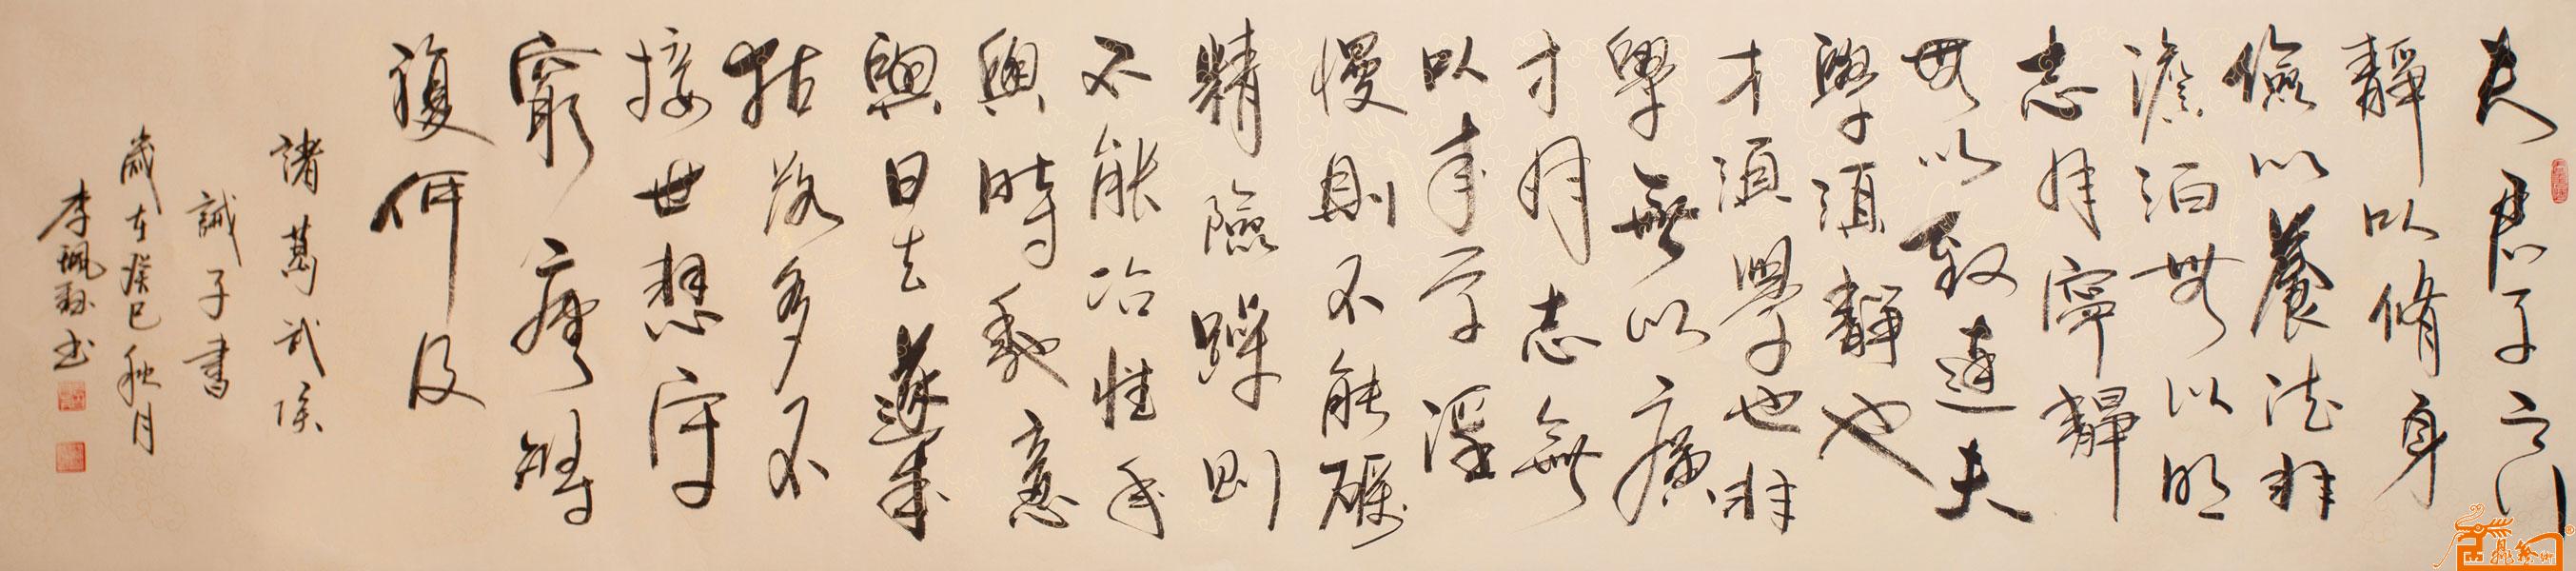 夫君子之行
靜以修身
儉以養德非
澹泊無以明
志非寧靜
無以致遠夫
學須靜也
才須學也非
學無以廣
才非志無
以成学淫
慢則不能礪
精險躁則
不能冶性年
與時馳意
與日去遂成
枯落多不
接世悲守
窮廬將
復何及
諸葛武侯
誡子書
歲在癸巳秋月
李珮書